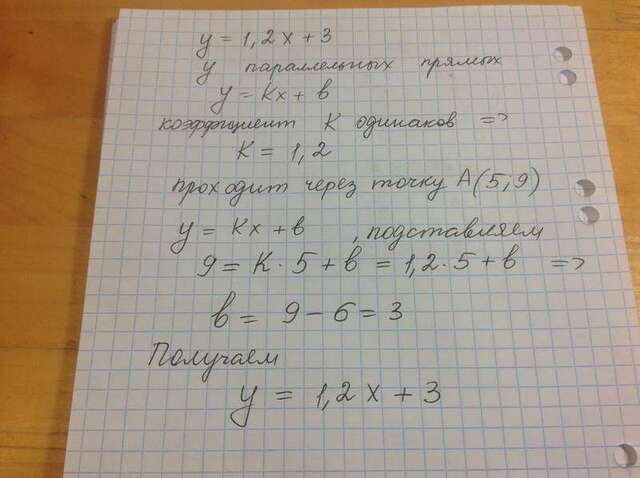 y = 1,2x + 3
у параллельных прямых
y = Kx + в
коэффициент K одинаков =>
K = 1,2
проходит через точку A(5; 9)
y = Kx + в , подставляем
9 = K · 5 + в = 1,2 · 5 + в =>
в = 9 - 6 = 3
Получаем
y = 1,2x + 3